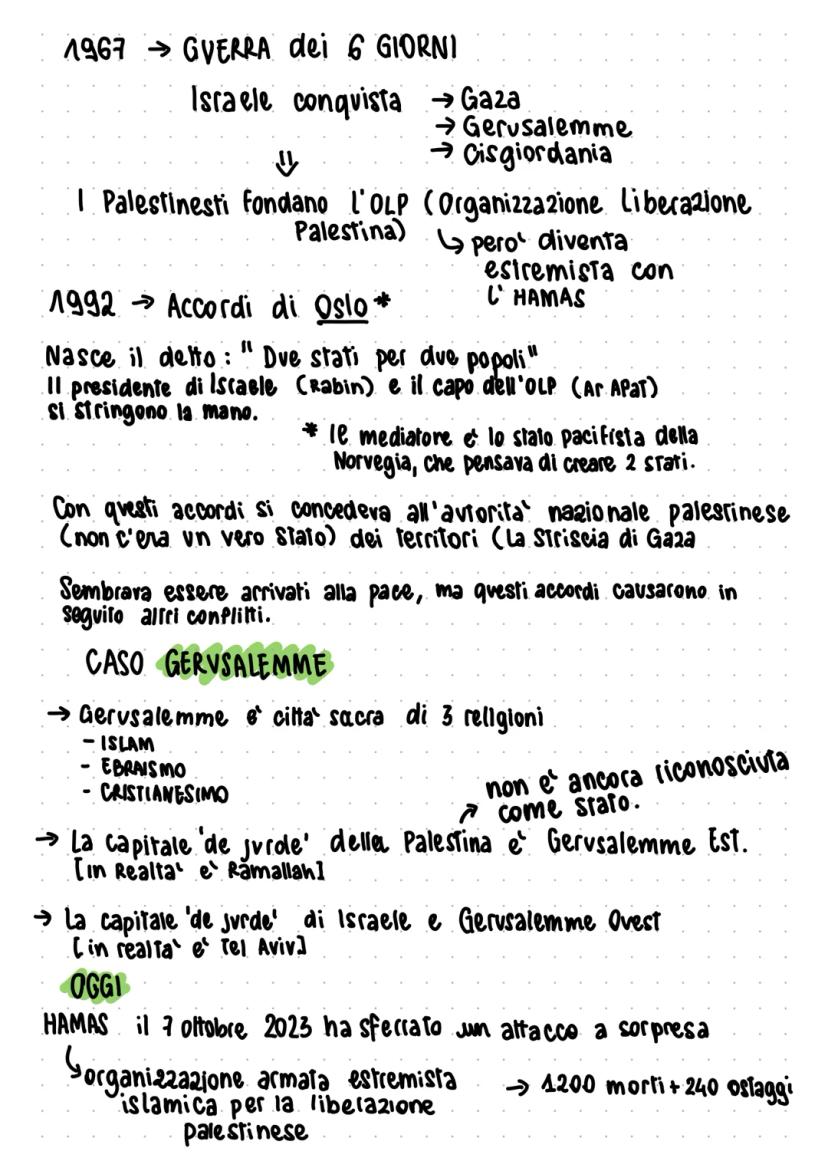 1967 → GUERRA dei 6 GIORNI
Israele conquista → Gaza
→ Gerusalemme
→ Cisgiordania
⇓
I Palestinesti fondano l'OLP (Organizzazione Liberazione
Palestina)
↳ pero' diventa
estremista con
l'HAMAS
1992 → Accordi di Oslo *
Nasce il detto: "Due stati per due popoli"
Il presidente di Israele (Rabin) e il capo dell'OLP (Ar APaT)
si stringono la mano.
* le mediatore è lo stato pacifista della
Norvegia, che pensava di creare 2 stati.
Con questi accordi si concedeva all'autorita' nazionale palestinese
(non c'era un vero Stato) dei territori (La Striscia di Gaza
Sembrava essere arrivati alla pace, ma questi accordi causarono in
seguito altri conflitti.
CASO GERUSALEMME
→ Gerusalemme e' citta' sacra di 3 religioni
- ISLAM
- EBRAISMO
- CRISTIANESIMO
non e' ancora riconosciuta
↗ come stato.
→ La capitale 'de jurde' della Palestina e' Gerusalemme Est.
[in Realta' e' Ramallah]
→ La capitale 'de jurde' di Israele e Gerusalemme Ovest
[in realta' e' Tel Aviv]
OGGI
HAMAS il 7 ottobre 2023 ha sferrato un attacco a sorpresa
↳ organizzazione armata estremista
islamica per la liberazione
palestinese
→ 1200 morti + 240 ostaggi